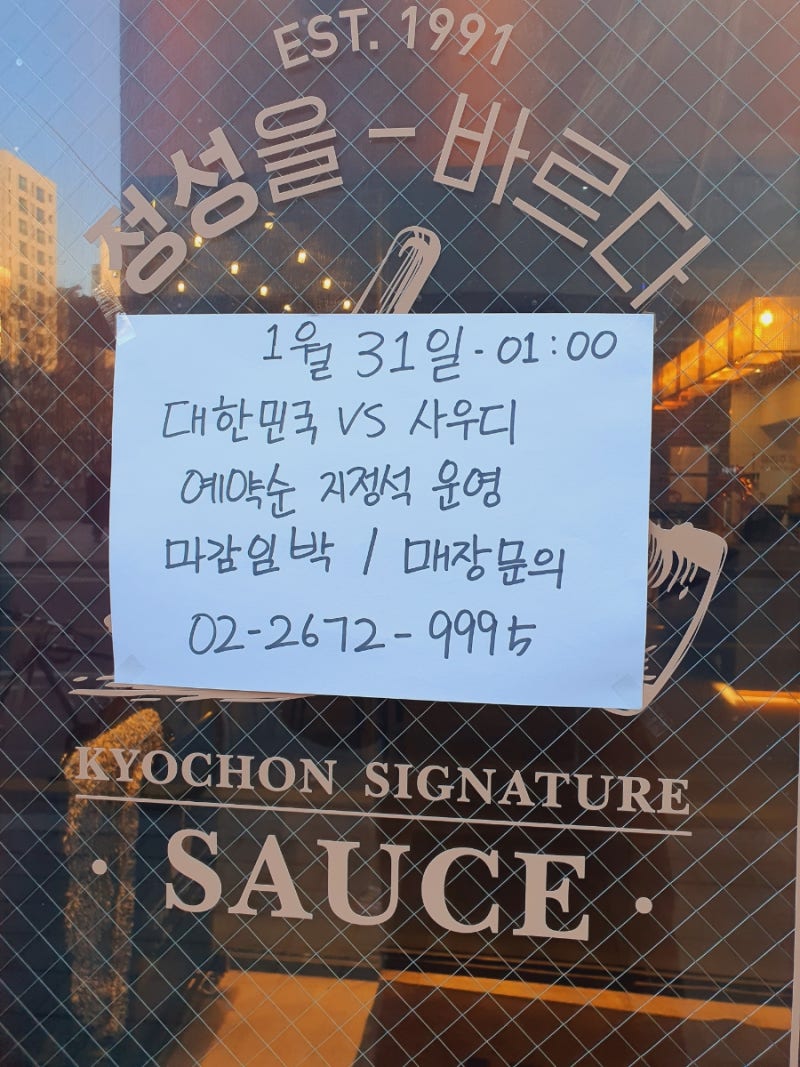 EST. 1991
정성을-바르다
1월 31일 - 01:00
대한민국 VS 사우디
예약순 지정석 운영
마감임박 / 매장문의
02-2672-9995
KYOCHON SIGNATURE
· SAUCE ·